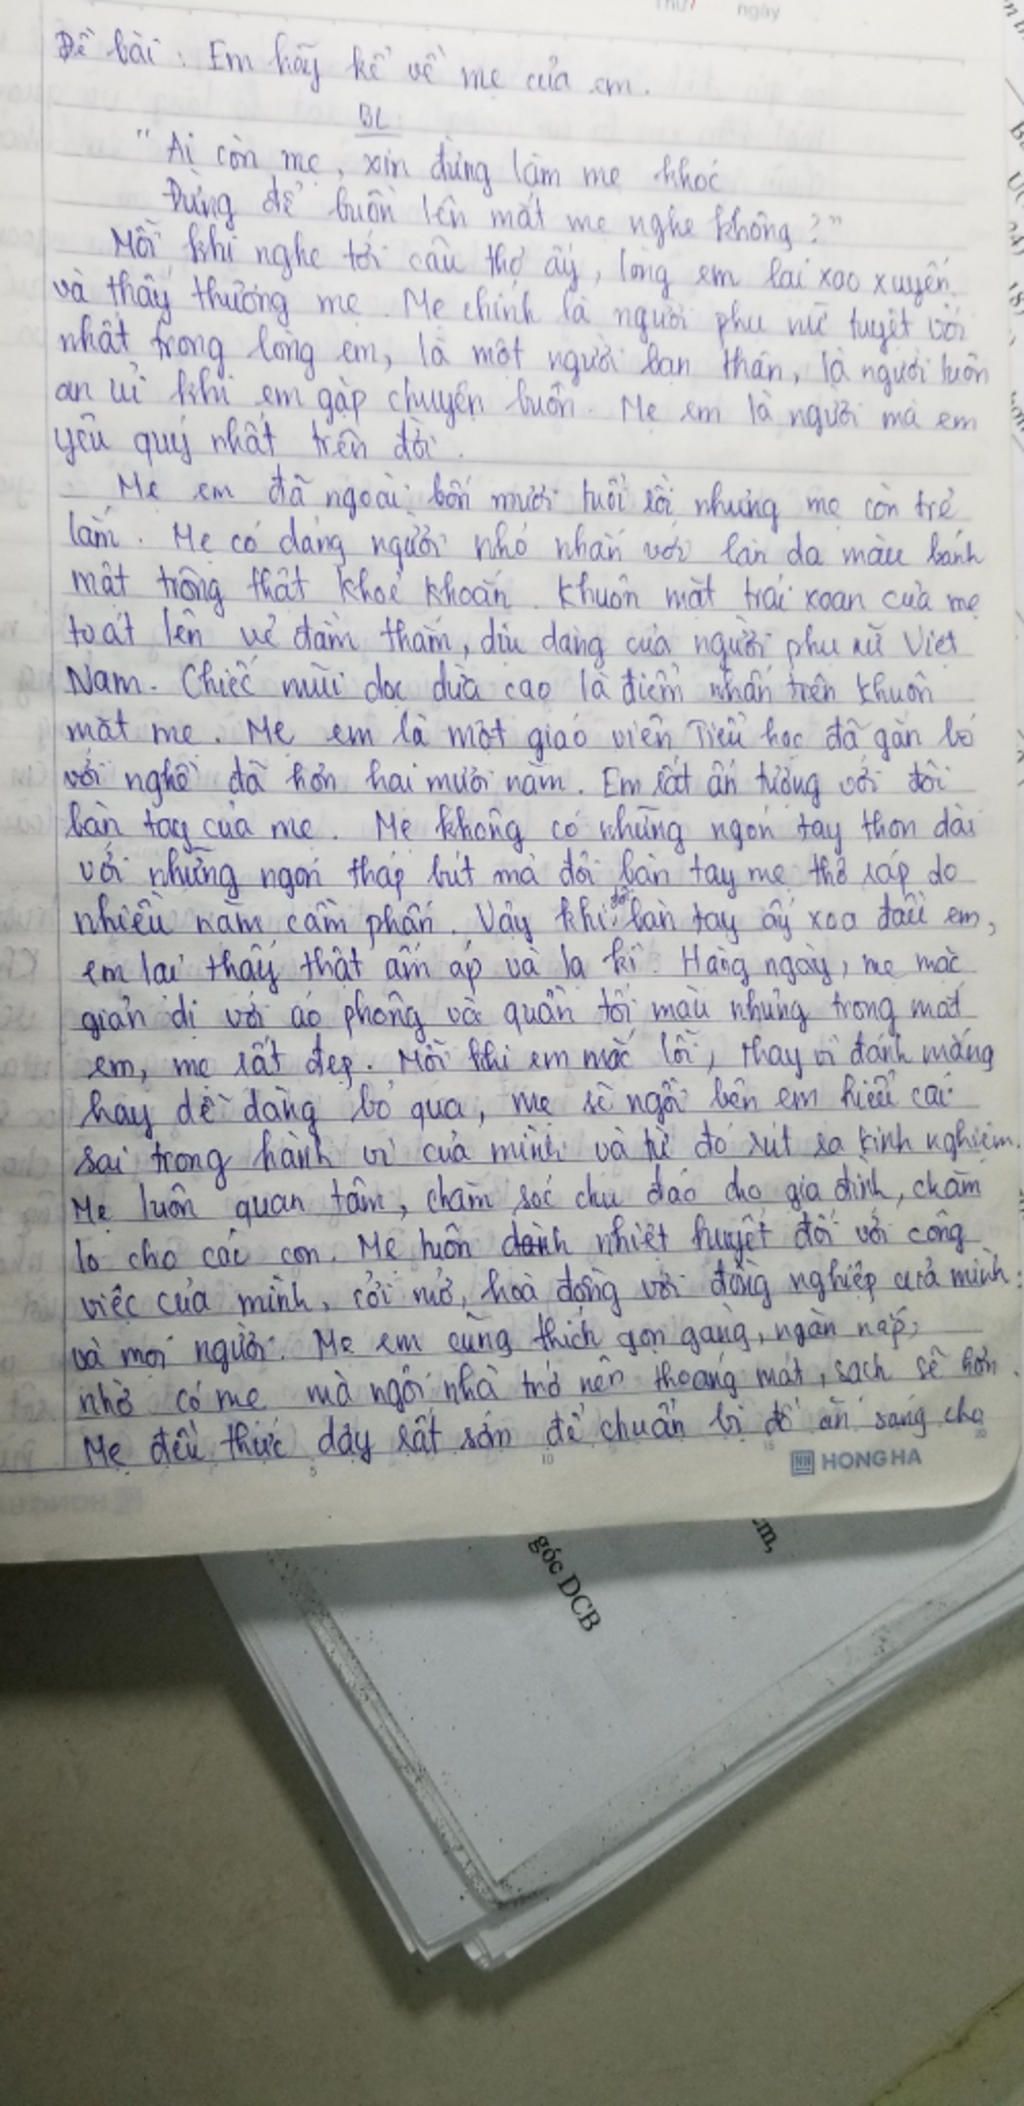 Thứ ngày
Đề bài : Em hãy kể về mẹ của em.
BL
"Ai còn mẹ, xin đừng làm mẹ khóc
Đừng để buồn lên mắt mẹ nghe không?"
Mỗi khi nghe tới câu thơ ấy, lòng em lại xao xuyến
và thấy thương mẹ. Mẹ chính là người phụ nữ tuyệt vời
nhất trong lòng em, là một người bạn thân, là người luôn
an ủi khi em gặp chuyện buồn. Mẹ em là người mà em
yêu quý nhất trên đời.
Mẹ em đã ngoài bốn mươi tuổi rồi nhưng mẹ còn trẻ
lắm. Mẹ có dáng người nhỏ nhắn với làn da màu bánh
mật trông thật khoẻ khoắn. Khuôn mặt trái xoan của mẹ
toát lên vẻ đằm thắm, dịu dàng của người phụ nữ Việt
Nam. Chiếc mũi dọc dừa cao là điểm nhấn trên khuôn
mặt mẹ. Mẹ em là một giáo viên Tiểu học đã gắn bó
với nghề đã hơn hai mươi năm. Em rất ấn tượng với đôi
bàn tay của mẹ. Mẹ không có những ngón tay thon dài
với những ngón tháp bút mà đôi bàn tay mẹ thô ráp do
nhiều năm cầm phấn. Vậy khi đôi bàn tay ấy xoa đầu em,
em lại thấy thật ấm áp và lạ kì. Hàng ngày, mẹ mặc
giản dị với áo phông và quần tối màu nhưng trong mắt
em, mẹ rất đẹp. Mỗi khi em mắc lỗi, thay vì đánh mắng
hay dễ dàng bỏ qua, mẹ sẽ ngồi bên em hiểu cái
sai trong hành vi của mình và từ đó rút ra kinh nghiệm.
Mẹ luôn quan tâm, chăm sóc chu đáo cho gia đình, chăm
lo cho các con. Mẹ luôn dành nhiệt huyết đối với công
việc của mình, cởi mở, hoà đồng với đồng nghiệp của mình
và mọi người. Mẹ em cũng thích gọn gàng, ngăn nắp,
nhờ có mẹ mà ngôi nhà trở nên thoáng mát, sạch sẽ hơn.
Mẹ đều thức dậy rất sớm để chuẩn bị đồ ăn sáng cho
5 10 15 20
HONG HA
góc DCB
em,